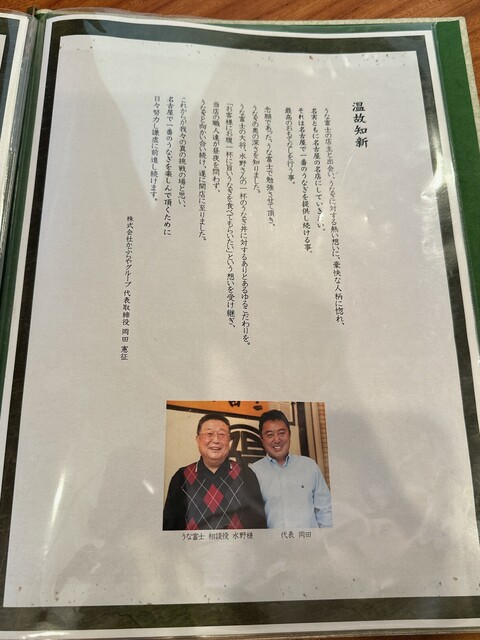 温故知新
うな富士の店主と出会い、うなぎに対する熱い想いに、豪快な人柄に惚れ、
名実ともに名古屋の名店にしていきたい。
それは名古屋で一番のうなぎを提供し続ける事、
最高のおもてなしを行う事。
念願であった、うな富士で勉強させて頂き、
うなぎの奥の深さを知りました。
うな富士の大将、水野さんの一杯のうなぎ丼に対するありとあるゆるこだわりを。
「お客様にお腹一杯に旨いうなぎを食べてもらいたい」という想いを受け継ぎ、
当店の職人達が昼夜を問わず、
うなぎと向かい合い続け、遂に開店に至りました。
これからが我々の真の挑戦の場と思い、
名古屋で一番のうなぎを楽しんで頂くために
日々努力し謙虚に前進し続けます。
株式会社かぶらやグループ 代表取締役 岡田 憲征
うな富士 相談役 水野様
代表 岡田